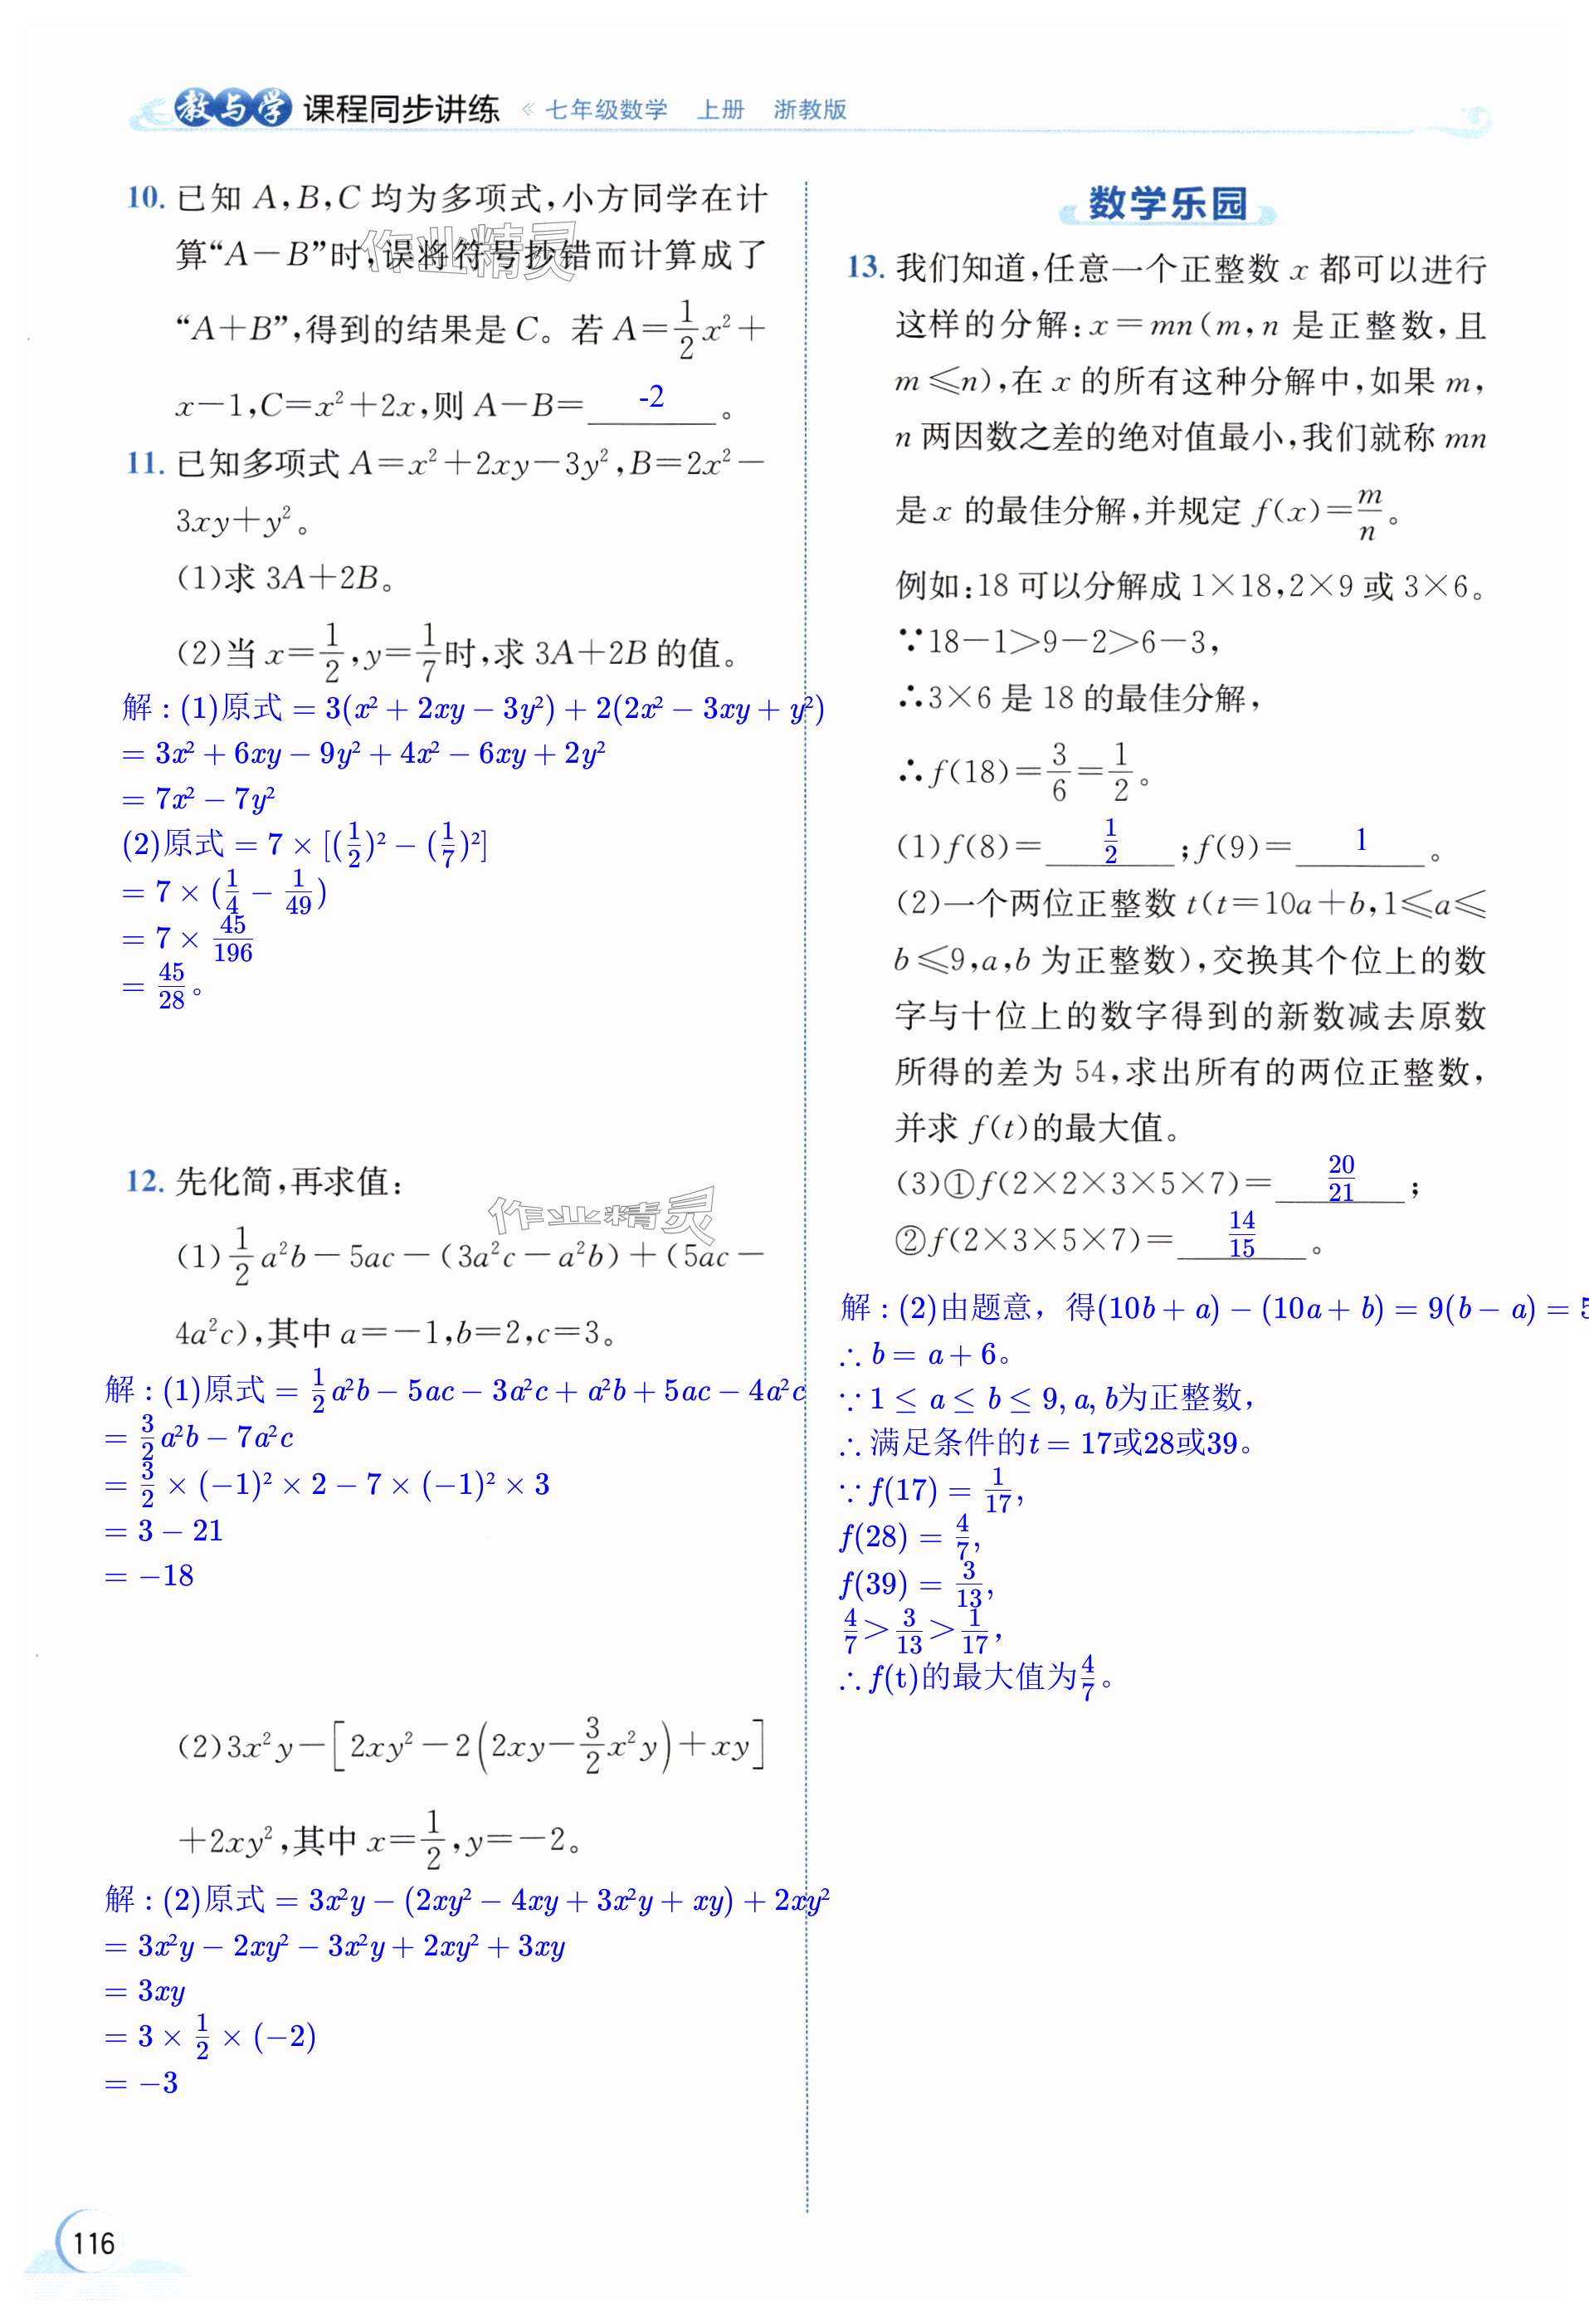 教与学 课程同步讲练 « 七年级数学 上册 浙教版
10. 已知 A,B,C 均为多项式,小方同学在计
算“A－B”时,误将符号抄错而计算成了
“A＋B”,得到的结果是 C。若 A=\frac{1}{2}x²＋
x－1,C=x²＋2x,则 A－B= -2 。
作业精灵
11. 已知多项式 A=x²＋2xy－3y²,B=2x²－
3xy＋y²。
(1)求 3A＋2B。
(2)当 x=\frac{1}{2},y=\frac{1}{7}时,求 3A＋2B 的值。
解:(1)原式 = 3(x² + 2xy − 3y²) + 2(2x² − 3xy + y²)
= 3x² + 6xy − 9y² + 4x² − 6xy + 2y²
= 7x² − 7y²
(2)原式 = 7 × [(\frac{1}{2})² − (\frac{1}{7})²]
= 7 × (\frac{1}{4} − \frac{1}{49})
= 7 × \frac{45}{196}
= \frac{45}{28}。
12. 先化简,再求值:
作业精灵
(1)\frac{1}{2}a²b－5ac－(3a²c－a²b)＋(5ac－
4a²c),其中 a=－1,b=2,c=3。
解:(1)原式 = \frac{1}{2}a²b − 5ac − 3a²c + a²b + 5ac − 4a²c
= \frac{3}{2}a²b − 7a²c
= \frac{3}{2} × (−1)² × 2 − 7 × (−1)² × 3
= 3 − 21
= −18
(2)3x²y－[2xy²－2(2xy－\frac{3}{2}x²y)＋xy]
＋2xy²,其中 x=\frac{1}{2},y=－2。
解:(2)原式 = 3x²y − (2xy² − 4xy + 3x²y + xy) + 2xy²
= 3x²y − 2xy² − 3x²y + 2xy² + 3xy
= 3xy
= 3 × \frac{1}{2} × (−2)
= −3
数学乐园
13. 我们知道,任意一个正整数 x 都可以进行
这样的分解:x=mn(m,n 是正整数,且
m≤n),在 x 的所有这种分解中,如果 m,
n 两因数之差的绝对值最小,我们就称 mn
是 x 的最佳分解,并规定 f(x)=\frac{m}{n}。
例如:18 可以分解成 1×18,2×9 或 3×6。
∵18－1>9－2>6－3,
∴3×6 是 18 的最佳分解,
∴f(18)=\frac{3}{6}=\frac{1}{2}。
(1)f(8)= \frac{1}{2} ;f(9)= 1 。
(2)一个两位正整数 t(t=10a＋b,1≤a≤
b≤9,a,b 为正整数),交换其个位上的数
字与十位上的数字得到的新数减去原数
所得的差为 54,求出所有的两位正整数,
并求 f(t)的最大值。
(3)①f(2×2×3×5×7)= \frac{20}{21} ;
②f(2×3×5×7)= \frac{14}{15} 。
解:(2)由题意，得(10b + a) − (10a + b) = 9(b − a) = 5
∴ b = a + 6。
∵ 1 ≤ a ≤ b ≤ 9, a, b为正整数，
∴ 满足条件的t = 17或28或39。
∵ f(17) = \frac{1}{17},
f(28) = \frac{4}{7},
f(39) = \frac{3}{13},
\frac{4}{7}>\frac{3}{13}>\frac{1}{17}，
∴ f(t)的最大值为\frac{4}{7}。
116